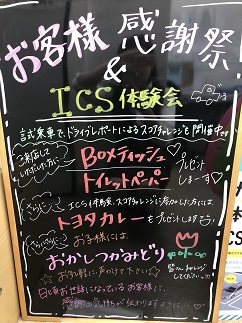 お客様 感謝祭
&
ICS体験会
試乗車で、ドライブレポートによるスコアチャレンジを開催中!!
ご来店して
いただいた方に
BOXティッシュ
トイレットペーパー
プレゼント
しまーす♡
さらに
ICS体験、スコアチャレンジに参加された方には、
トヨタカレー をプレゼントします
さらにさらに
お子様には
おかしつかみどり
お気軽に声かけて下さい☆
皆さんチャレンジ
してください!!!
日頃お世話になっているお客様に、
感謝の気持ちが伝わりますように